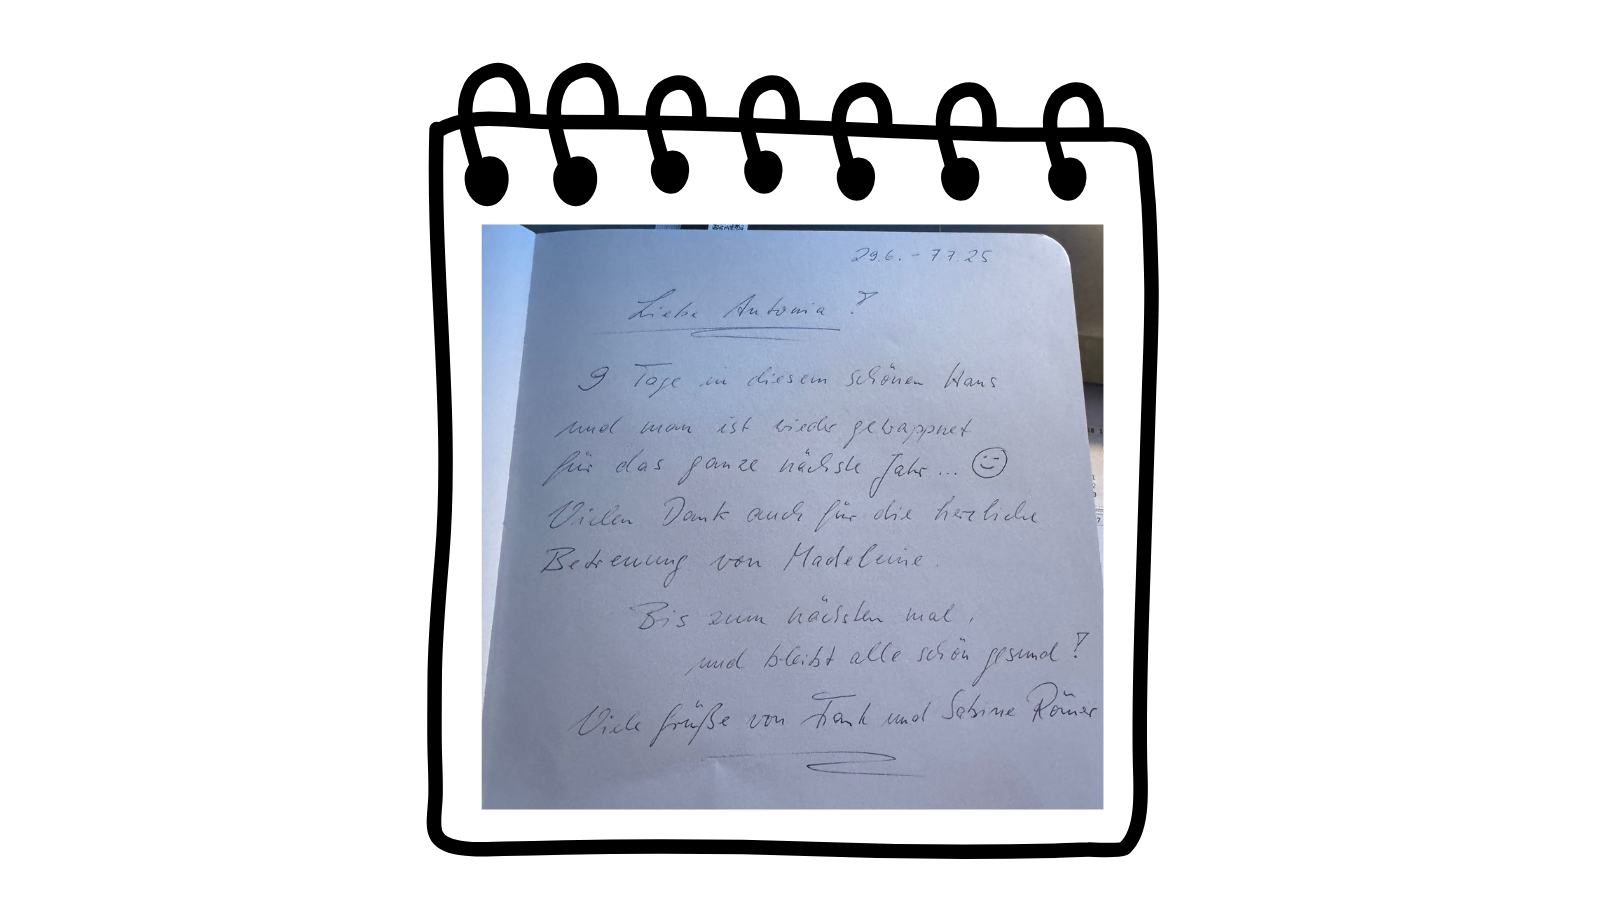 29.6. - 7.7.25
Liebe Antonia!
9 Tage in diesem schönen Haus
und man ist wieder gewappnet
für das ganze nächste Jahr... 😉
Vielen Dank auch für die herzliche
Betreuung von Madeleine.
Bis zum nächsten mal,
und bleibt alle schön gesund!
Viele Grüße von Frank und Sabine Römer